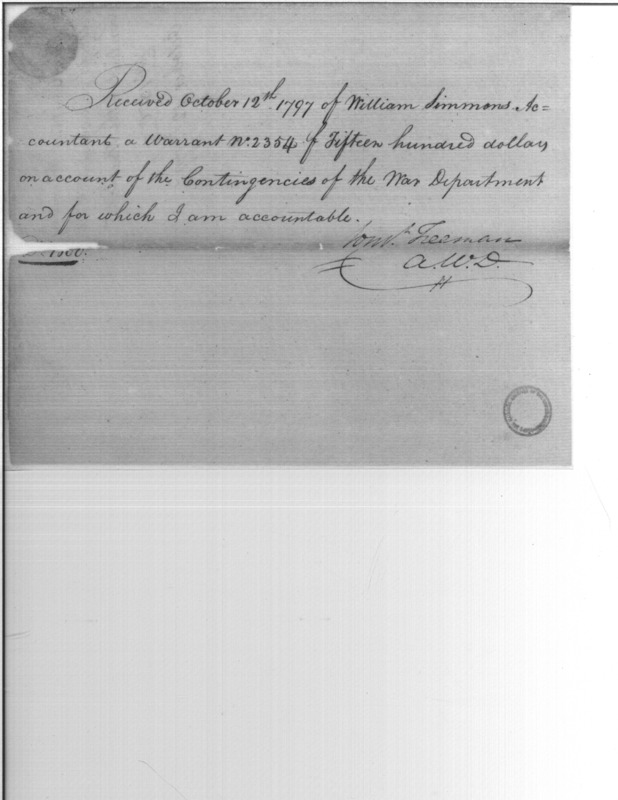 Received October 12th 1797 of William Simmons Ac=
countant a Warrant No. 2354 of Fifteen hundred dollars
on account of the Contingencies of the War Department
and for which I am accountable.
1500.
Const. Freeman
A.W.D.